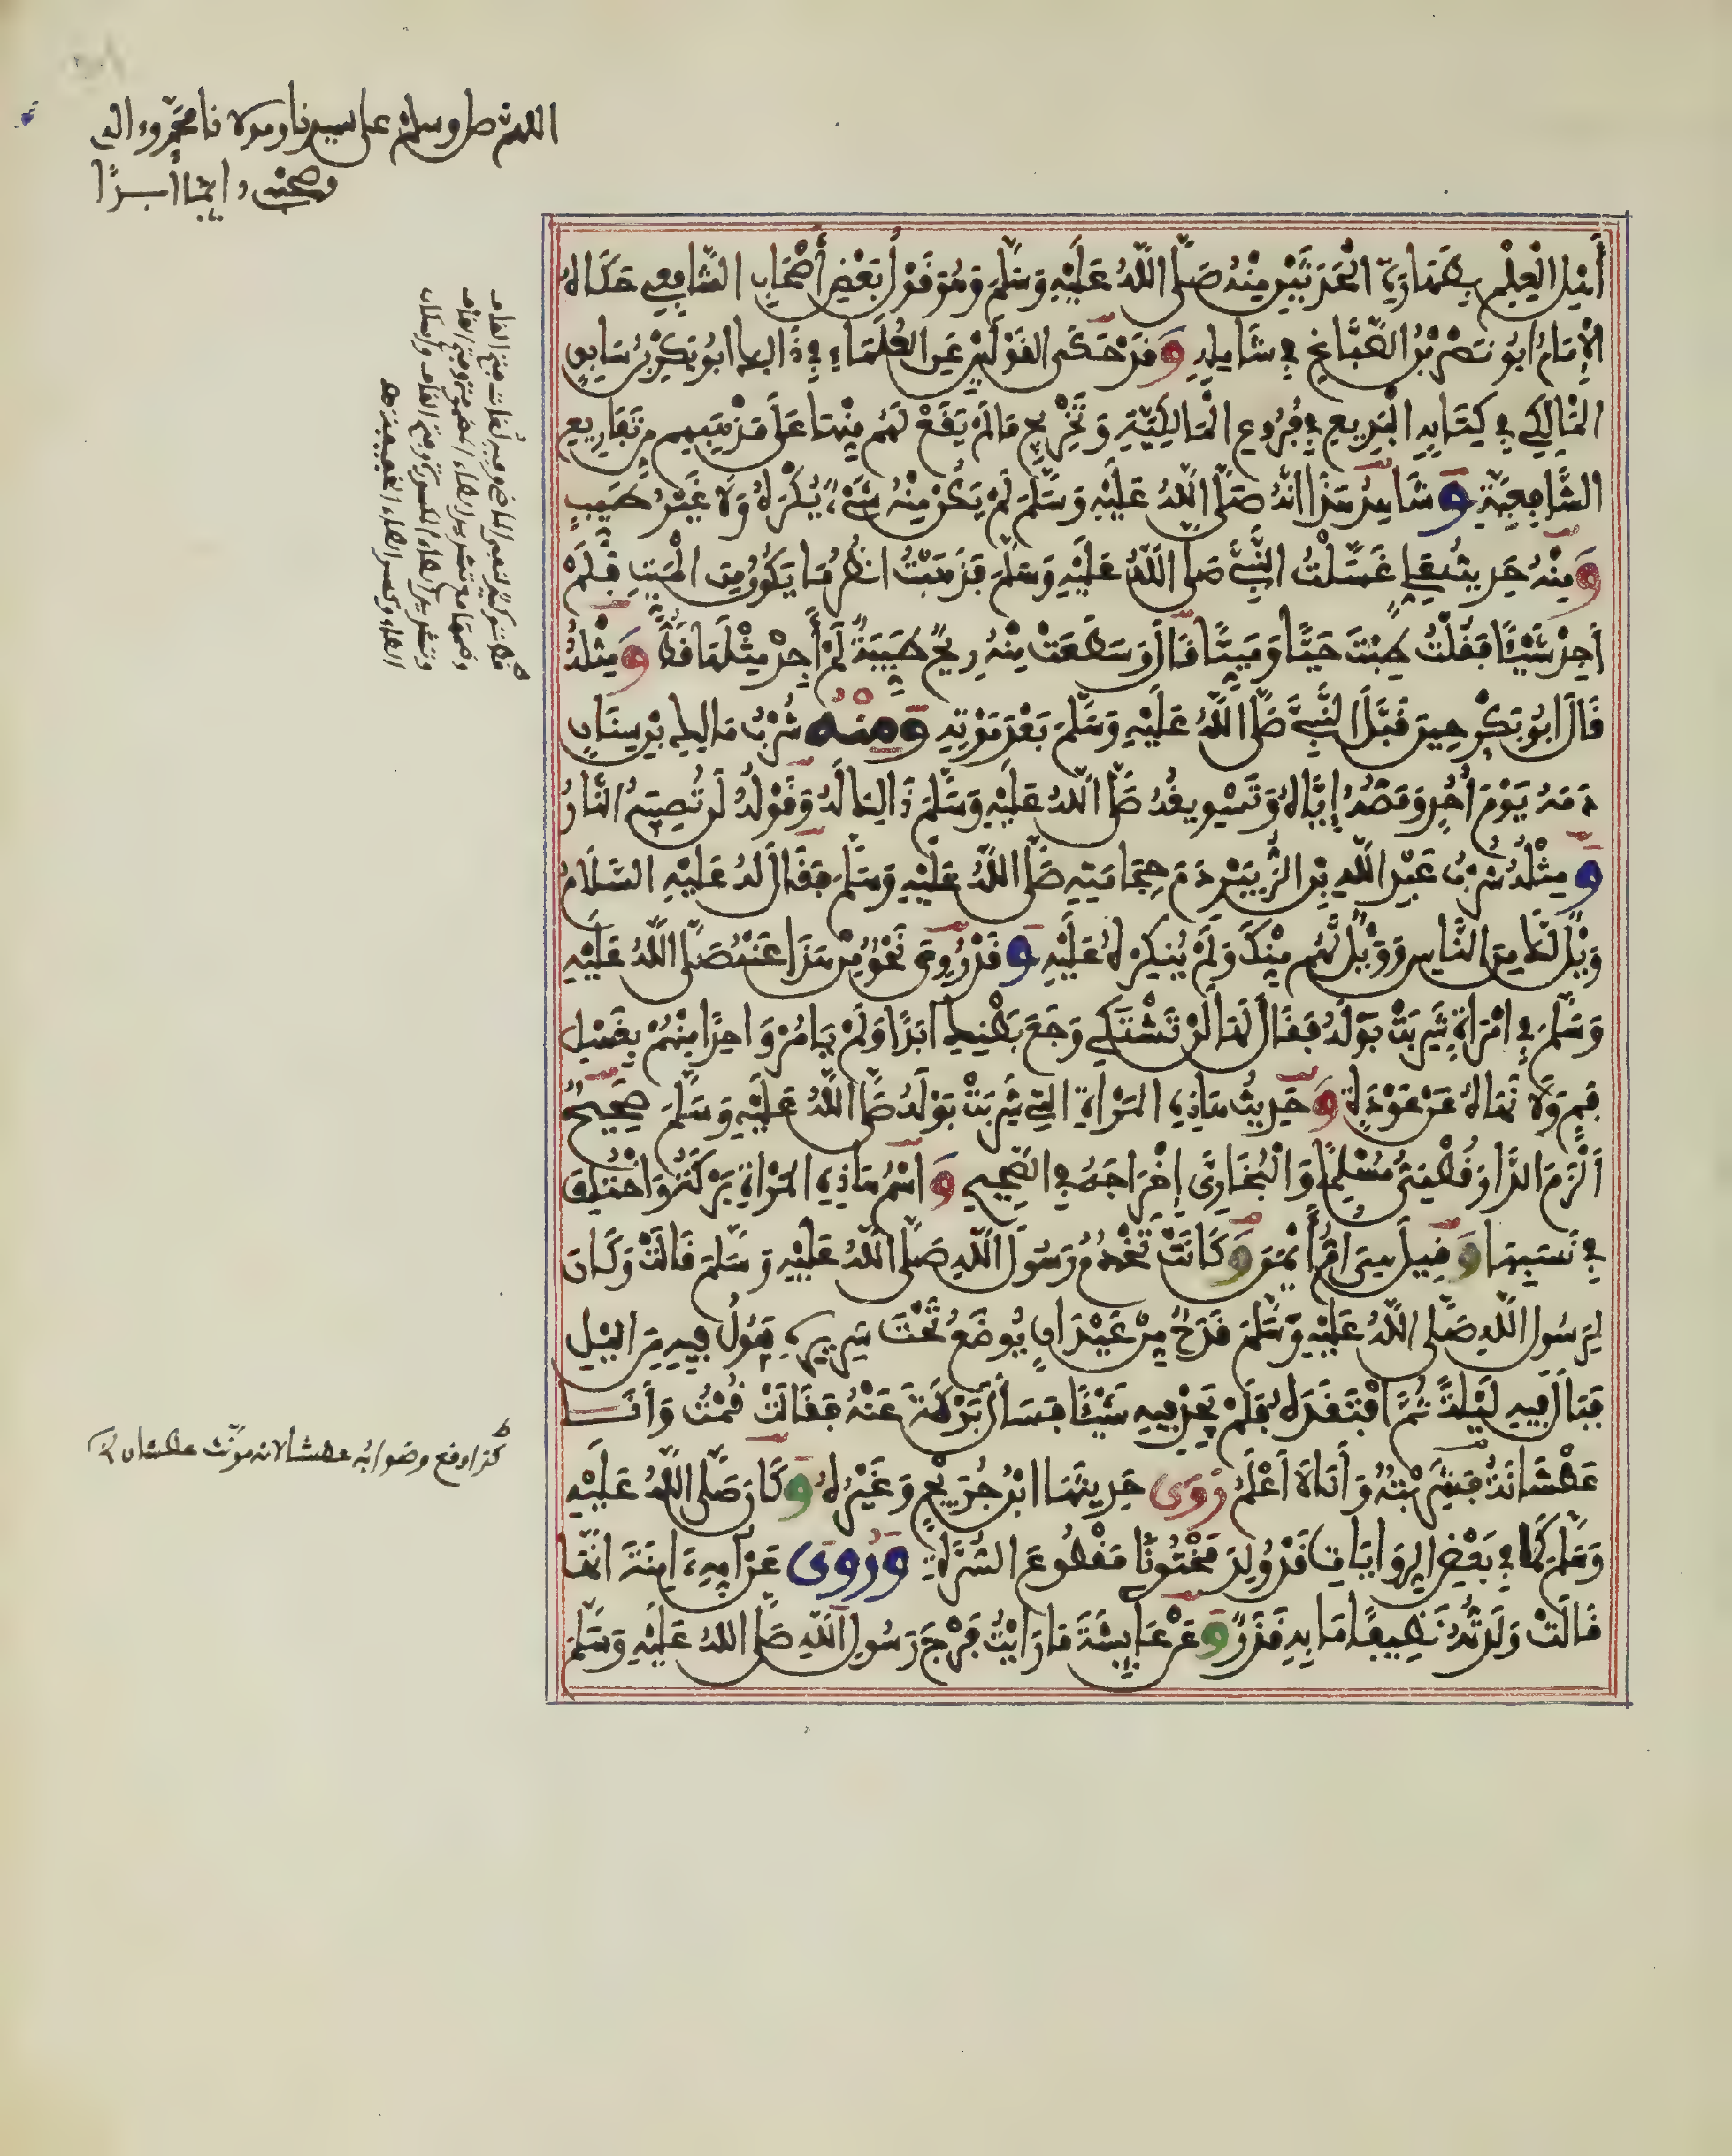 اللهم صل وسلم على سيدنا ومولانا محمد وءاله
وصحبه دايما أبدًا
أَهْلِ الْعِلْمِ بِطَهَارَةِ الْحَدَثَيْنِ مِنْهُ صَلَّى اللَّهُ عَلَيْهِ وَسَلَّمَ وَهُوَ قَوْلُ بَعْضِ أَصْحَابِ الشَّافِعِي حَكَاهُ
الْإِمَامُ أَبُو نَصْرِ بْنُ الصَّبَّاغِ فِي شَامِلِهِ وَقَدْ حَكَى الْقَوْلَيْنِ عَنِ الْعُلَمَاءِ فِي ذَالِكَ أَبُو بَكْرِ بْنُ سَابِقٍ
الْمَالِكِي فِي كِتَابِهِ الْبَدِيعِ فِي فُرُوعِ الْمَالِكِيَّةِ وَتَخْرِيجِ مَا لَمْ يَقَعْ لَهُمْ مِنْهَا عَلَى مَذْهَبِهِمْ مِنْ تَفَارِيعِ
الشَّافِعِيَّةِ وَشَاهِدُ هَذَا أَنَّهُ صَلَّى اللَّهُ عَلَيْهِ وَسَلَّمَ لَمْ يَكُنْ مِنْهُ شَيْءٌ يُكْرَهُ وَلَا غَيْرُ طَيِّبٍ
وَمِنْهُ حَدِيثُ عَلِي غَسَّلْتُ النَّبِيَّ صَلَّى اللَّهُ عَلَيْهِ وَسَلَّمَ فَذَهَبْتُ أَنْظُرُ مَا يَكُونُ مِنَ الْمَيِّتِ فَلَمْ
أَجِدْ شَيْئًا فَقُلْتُ طِبْتَ حَيًّا وَمَيِّتًا قَالَ وَسَطَعَتْ مِنْهُ رِيحٌ طَيِّبَةٌ لَمْ أَجِدْ مِثْلَهَا قَطُّ وَمِثْلُهُ
قَالَ أَبُو بَكْرٍ حِينَ قَبَّلَ النَّبِيَّ صَلَّى اللَّهُ عَلَيْهِ وَسَلَّمَ بَعْدَ مَوْتِهِ وَمِنْهُ شُرْبُ مَالِكِ بْنِ سِنَانٍ
دَمَهُ يَوْمَ أُحُدٍ وَمَصُّهُ إِيَّاهُ وَتَسْوِيغُهُ صَلَّى اللَّهُ عَلَيْهِ وَسَلَّمَ ذَالِكَ لَهُ وَقَوْلُهُ لَنْ تُصِيبَهُ النَّارُ
وَمِثْلُهُ شُرْبُ عَبْدِ اللَّهِ بْنِ الزُّبَيْرِ دَمَ حِجَامَتِهِ صَلَّى اللَّهُ عَلَيْهِ وَسَلَّمَ فَقَالَ لَهُ عَلَيْهِ السَّلَامُ
وَيْلٌ لَكَ مِنَ النَّاسِ وَوَيْلٌ لَهُمْ مِنْكَ وَلَمْ يُنْكِرْهُ عَلَيْهِ وَقَدْ رُوِيَ نَحْوٌ مِنْ هَذَا عَنْهُ صَلَّى اللَّهُ عَلَيْهِ
وَسَلَّمَ فِي امْرَأَةٍ شَرِبَتْ بَوْلَهُ فَقَالَ لَهَا لَنْ تَشْتَكِي وَجَعَ بَطْنِكِ أَبَدًا وَلَمْ يَامُرْ وَاحِدًا مِنْهُمْ بِغَسْلِ
فَمٍ وَلَا نَهَاهُ عَنْ عَوْدَةٍ وَحَدِيثُ هَاذِهِ الْمَرْأَةِ الَّتِي شَرِبَتْ بَوْلَهُ صَلَّى اللَّهُ عَلَيْهِ وَسَلَّمَ صَحِيحٌ
أَلْزَمَ الدَّارَقُطْنِيُّ مُسْلِمًا وَالْبُخَارِيَّ إِخْرَاجَهُ فِي الصَّحِيحِ وَاسْمُ هَاذِهِ الْمَرْأَةِ بَرَكَةُ وَاخْتُلِفَ
فِي نَسَبِهَا وَقِيلَ هِيَ أُمُّ أَيْمَنَ وَكَانَتْ تَخْدُمُ رَسُولَ اللَّهِ صَلَّى اللَّهُ عَلَيْهِ وَسَلَّمَ قَالَتْ وَكَانَ
لِرَسُولِ اللَّهِ صَلَّى اللَّهُ عَلَيْهِ وَسَلَّمَ قَدَحٌ مِنْ عَيْدَانٍ يُوضَعُ تَحْتَ سَرِيرِهِ يَبُولُ فِيهِ مِنَ اللَّيْلِ
فَبَالَ فِيهِ لَيْلَةً ثُمَّ افْتَقَدَهُ فَلَمْ يَجِدْ فِيهِ شَيْئًا فَسَأَلَ بَرَكَةَ عَنْهُ فَقَالَتْ قُمْتُ وَأَنَا
عَطْشَانَةٌ فَشَرِبْتُهُ وَأَنَا لَا أَعْلَمُ رَوَى حَدِيثَهَا ابْنُ جُرَيْجٍ وَغَيْرُهُ وَكَانَ صَلَّى اللَّهُ عَلَيْهِ
وَسَلَّمَ كَمَا فِي بَعْضِ الرِّوَايَاتِ قَدْ وُلِدَ مَخْتُونًا مَقْطُوعَ السُّرَّةِ وَرُوِيَ عَنْ أُمِّهِ ءَامِنَةَ أَنَّهَا
قَالَتْ وَلَدْتُهُ نَظِيفًا مَا بِهِ قَذَرٌ وَعَنْ عَايِشَةَ مَا رَأَيْتُ فَرْجَ رَسُولِ اللَّهِ صَلَّى اللَّهُ عَلَيْهِ وَسَلَّمَ
قط تركيد لنفي الماضي وفيه لغات فتح القاف
وضمها مع تشديد الطاء المضمومة وفتح القاف
وتشديد الطاء المكسورة وفتح القاف وإسكان
الطاء وكسر الطاء الخفيفة هـ
كذا وقع وصوابه عطشا لانه مونث عطشان